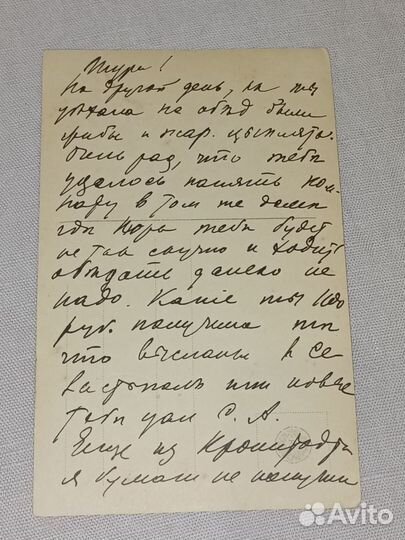 Шура!
На другой день, как ты
уѣхала на обѣд были
грибы и жар. цыплята.
Очень рад, что тебѣ
удалось нанять ком-
нату в том же доме
где Нюра тебѣ будет
не так скучно и ходить
обѣдать далеко не
надо. Какiе ты
руб. получила
что высланы в Се
или новые
тебѣ дал С. А.
Еще из Кронштадта
я бумаги не получил
Avito